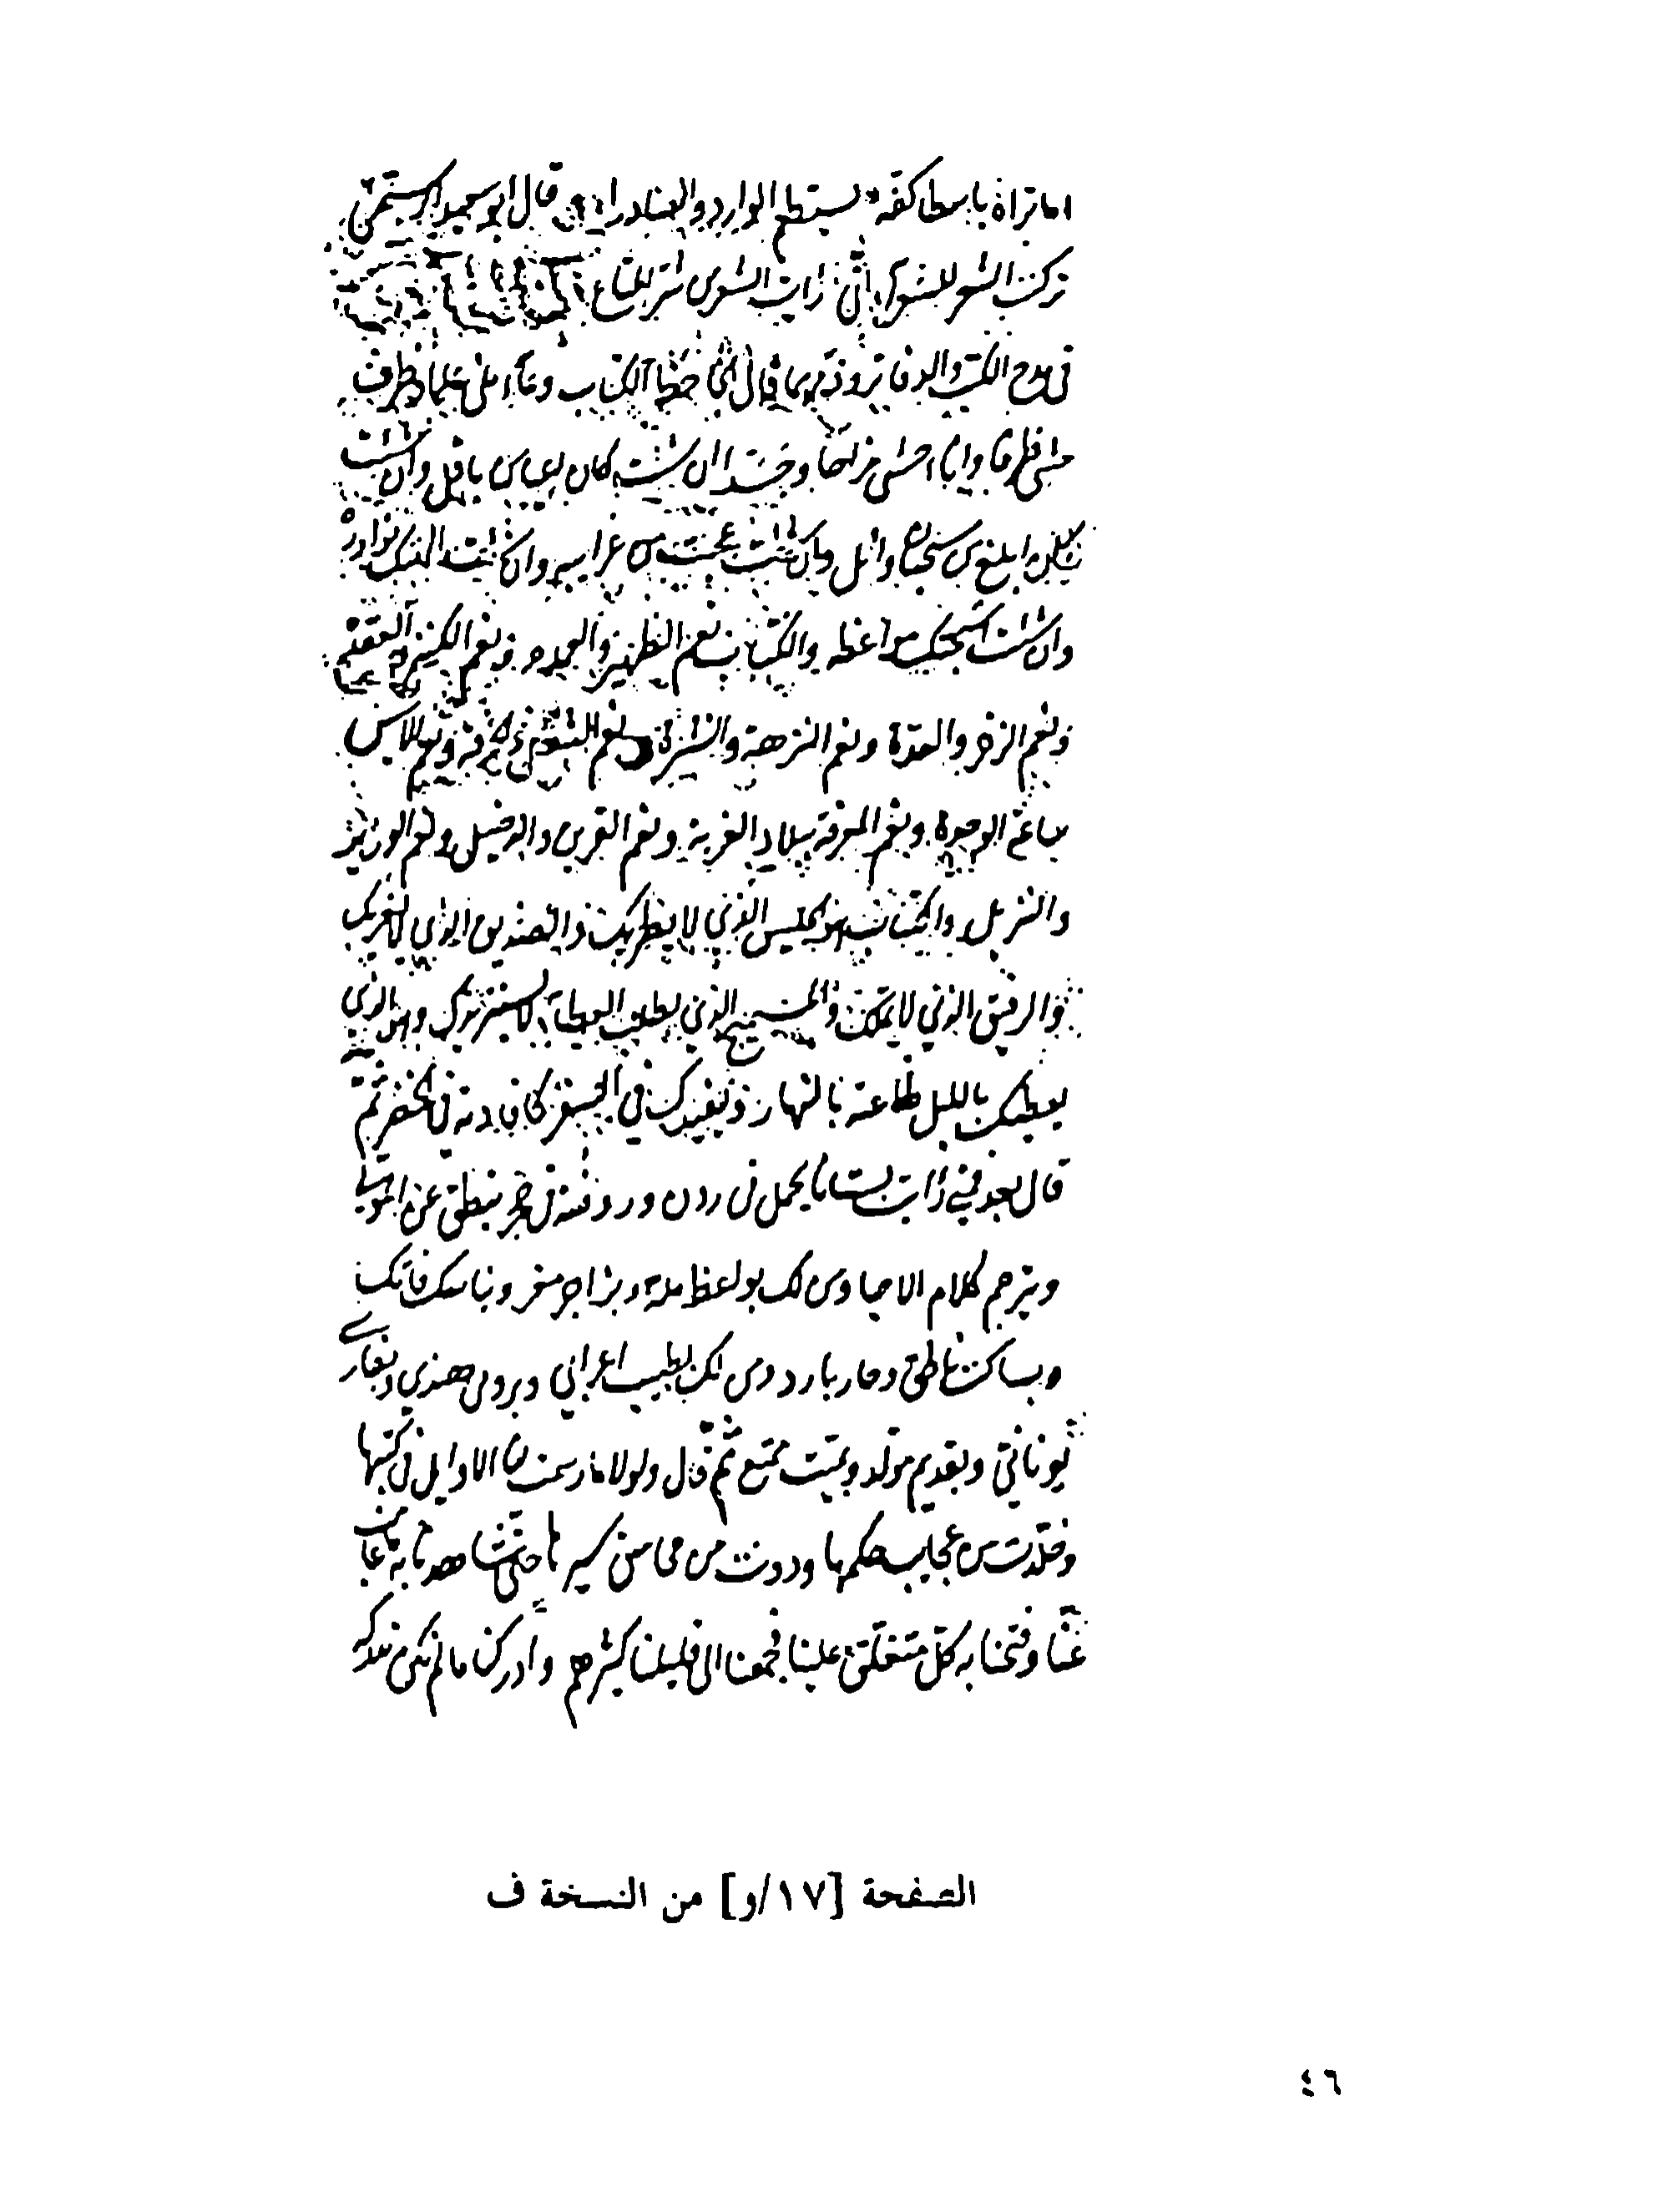 اما تراه باسطا كفه يستطعم الوارد والصادرا قال ابو سعيد الرستمى
تركت الشعر للشعراء انى رايت الشعر من شر المتاع
فى مدح الكتب والدفاتر وذكر بما قال الكتاب وعاء ملئ علما وظرف
حشى ظرفا واناء حشى مزاحا وجدا ان شئت كان اعيا من باقل وان شئت
كان ابلغ من سحبان وائل وان شئت عجبت من غرايبه وان شئت الهتك نوادره
وان شئت اشجتك مواعظه والكتاب نعم الظهير والعمدة ونعم الكنز والعقدة
ونعم الذخر والعدة ونعم النزهة والنشرة ونعم الشغل والحرفة ونعم الانيس
ساعة الوحدة ونعم المعرفة ببلاد الغربة ونعم القرين والدخيل ونعم الوزير
والنزيل والكتاب هو الجليس الذى لا يطريك والصديق الذي لا يغريك
والرفيق الذي لا يملك والمستميح الذي لا يستزيدك وهو الذي
يعطيك بالليل طاعته بالنهار ويفيدك في السفر كافادته فى الحضر ثم
قال بعد فمتى رايت بستانا يحمل فى ردن وروضة فى حجر ينطق عن الموتى
ويترجم كلام الاحيا ومن لك بواعظ مله وبزاجر مغر وبناسك فاتك
وبساكت ناطق وحار بارد ومن لك بطبيب اعرابي وبرومى هندي وبفارسي
يونانيّ وبقديم مولد وبميت ممتع ثم قال ولولا ما رسمت لنا الاوايل فى كتبها
وخلدت من عجايب حكمها ودونت من محاسن سيرها حتى شاهدنا به ما غاب
عنّا وفتحنا به كلّ متغلق علينا فجمعنا الى قليلنا كثيرهم وادركنا ما لم نكن ندركه
الصفحة [١٧/و] من النسخة ف
٤٦